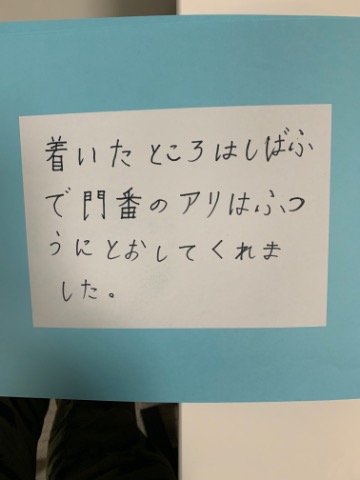 着いたところはしばふ
で門番のアリはふつ
うにとおしてくれま
した。